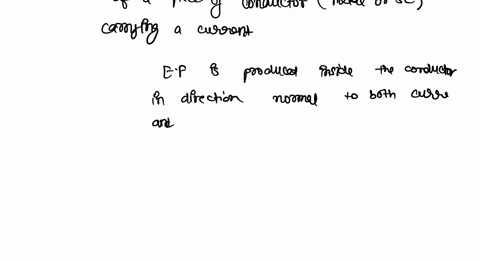 of a piece of conductor (metal or SC)
carrying a current
E.F is produced inside the conductor
in direction normal to both curre
and